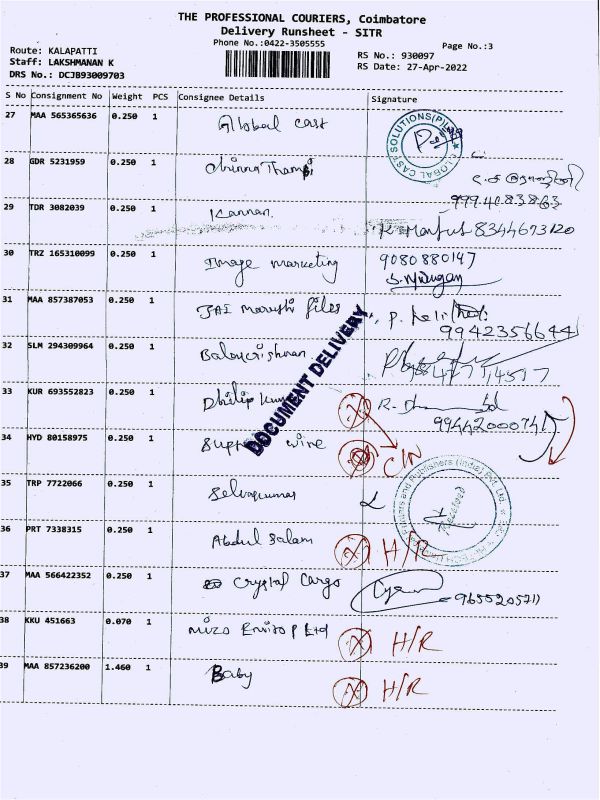 THE PROFESSIONAL COURIERS, Coimbatore
Delivery Runsheet - SITR
Phone No.:0422-3505555
Page No.:3
Route: KALAPATTI
Staff: LAKSHMANAN K
DRS No.: DCJB93009703
RS No.: 930097
RS Date: 27-Apr-2022
S No Consignment No Weight PCS Consignee Details Signature
27 MAA 565365636 0.250 1 Global cast
GLOBAL CAST SOLUTIONS(P)
28 GDR 5231959 0.250 1 chinna Thambi
999 4083863
29 TDR 3082039 0.250 1 Kannan
8344673120
30 TRZ 165310099 0.250 1 Image marketing 9080880147
S. Murugan
31 MAA 857387053 0.250 1 JAI maruthi files
9942356644
32 SLM 294309964 0.250 1 Balayerishnan
DOCUMENT DELIVERY
33 KUR 693552823 0.250 1 Dhilip
9944200074
34 HYD 80158975 0.250 1 wire C/N
35 TRP 7722066 0.250 1 Selvakumar
Printers and Publishers (India) Pvt. Ltd.
Received
36 PRT 7338315 0.250 1 Abdul Salam H/R
37 MAA 566422352 0.250 1 Crystal Cargo
9655205711
38 KKU 451663 0.070 1 Mizo Enviro P Ltd H/R
39 MAA 857236200 1.460 1 Baby H/R